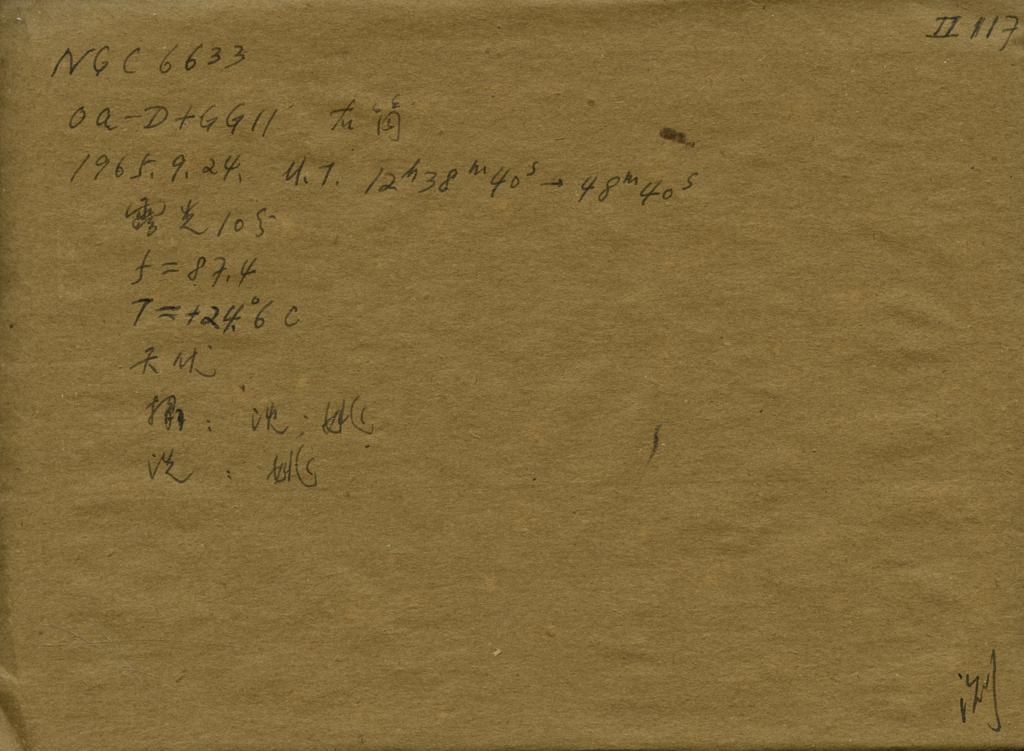 II 117
NGC 6633
Oa-D+GG11 右筒
1965.9.24. U.T. 12ʰ38ᵐ40ˢ → 48ᵐ40ˢ
露光10分
f=87.4
T=+24.°6 C
天优
摄: 沈; 姚
洗: 姚
测